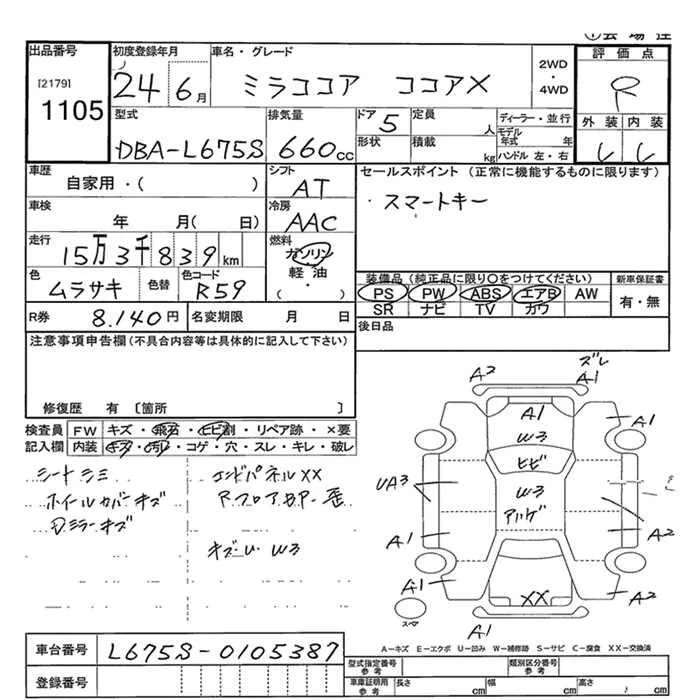 出品番号 初度登録年月 車名・グレード 評価点
[2179] 1105 24 6月 ミラココア ココアX 2WD・4WD R
型式 排気量 ドア 5 定員 人 ディーラー・並行 外装 内装
DBA-L675S 660cc 形状 積載 kg モデル年式 年 ハンドル 左・右
車歴 シフト セールスポイント (正常に機能するものに限ります)
自家用・( ) AT ・スマートキー
車検 冷房
年 月( 日) AAC
走行 燃料
15万3千839km ガソリン
色 色替 色コード 軽油 装備品(純品に限り○をつけてください) 新車保証書
ムラサキ R59 ・( ) PS PW ABS エアB AW 有・無
SR ナビ TV カワ
R券 8.140円 名変期限 月 日 後日品
注意事項申告欄(不具合内容等は具体的に記入して下さい)
修復歴 有 〔箇所 〕
検査員 FW キズ・飛石・ヒビ割・リペア跡・×要
記入欄 内装 キズ・汚レ・コゲ・穴・スレ・キレ・破レ
シートシミ エンドパネルXX
ホイルカバーキズ R.フロア
ミラーキズ
キズ・U W3
ズレ
A2 A1
A1 A1
W3
ヒビ
UA3 W3
A1 A2
A1 XX A2
スペア
A1
A－キズ E－エクボ U－凹み W－補修跡 S－サビ C－腐食 XX－交換済
車台番号 L675S-0105387 型式指定番号 参考 類別区分番号 参考
登録番号 車庫証明用 参考 長さ cm 幅 cm 高さ cm